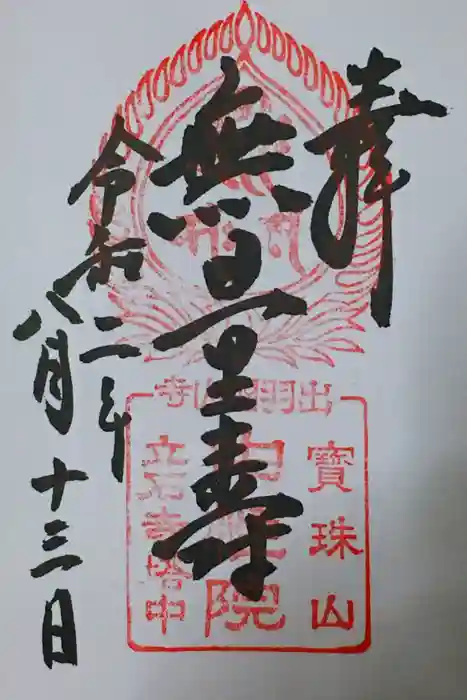 奉拝
無量壽
令和二年
八月十三日
出羽國山寺
寶珠山
性相院
立石寺塔中